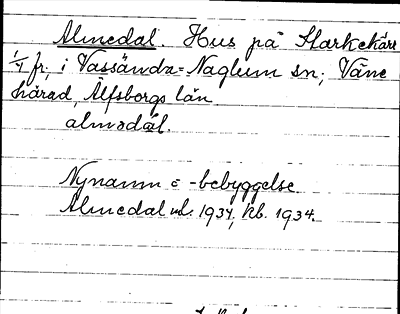 Almedal. Hus på Starkekärr
1/4 fr, i Vassända=Naglum sn; Väne
härad, Älfsborgs län
almədál.
Nynamn o -bebyggelse.
Almedal 1934, kb. 1934.